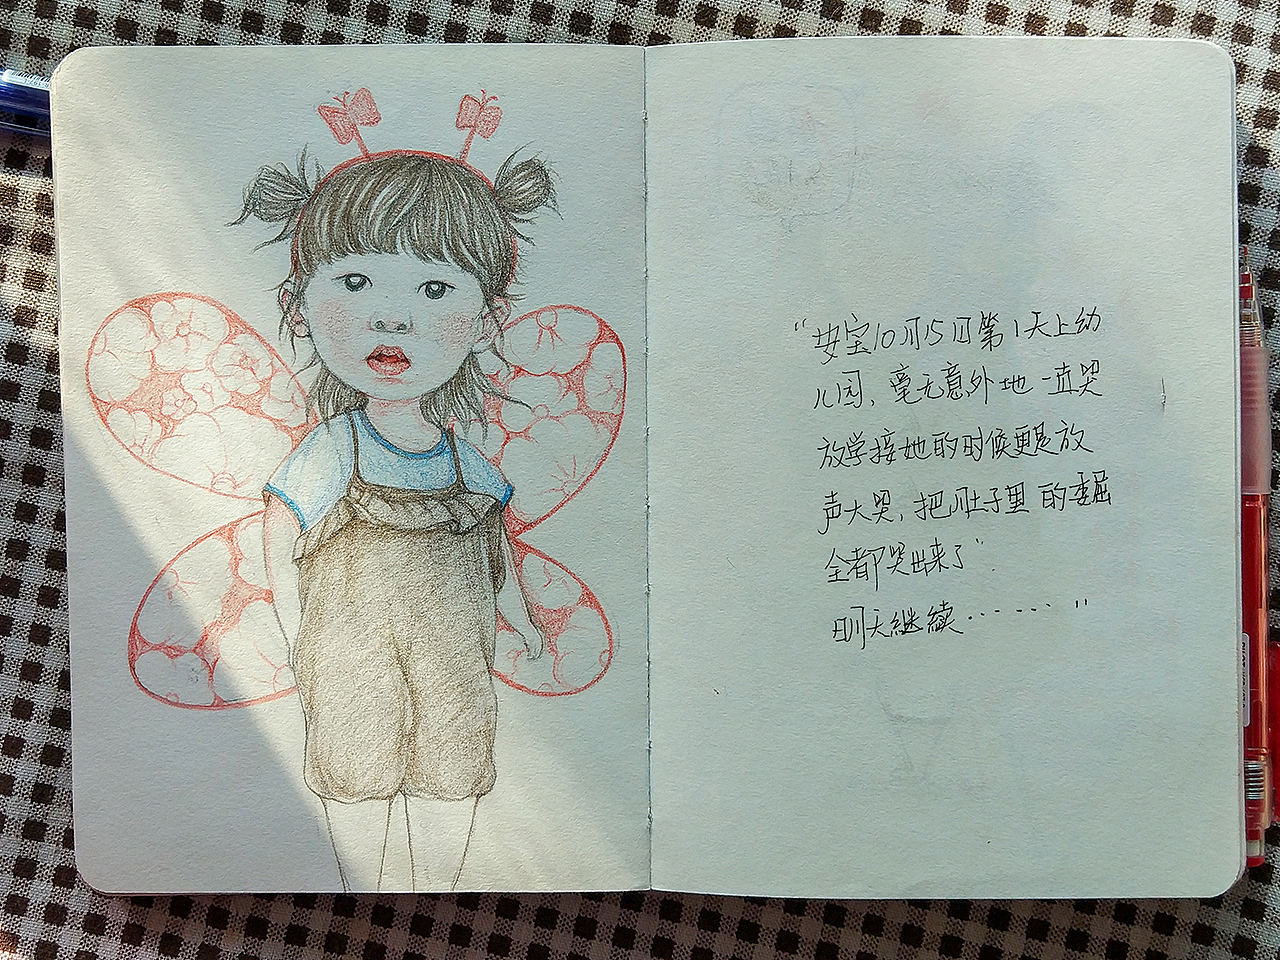 “安宝10月15日第1天上幼
儿园、毫无意外地一直哭
放学接她的时候更是放
声大哭,把肚子里的委屈
全都哭出来了”
明天继续……"